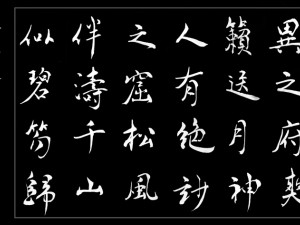 異之府爽
籟送月神
人有絶妙
之窟松風
伴濤千山
似碧芴歸